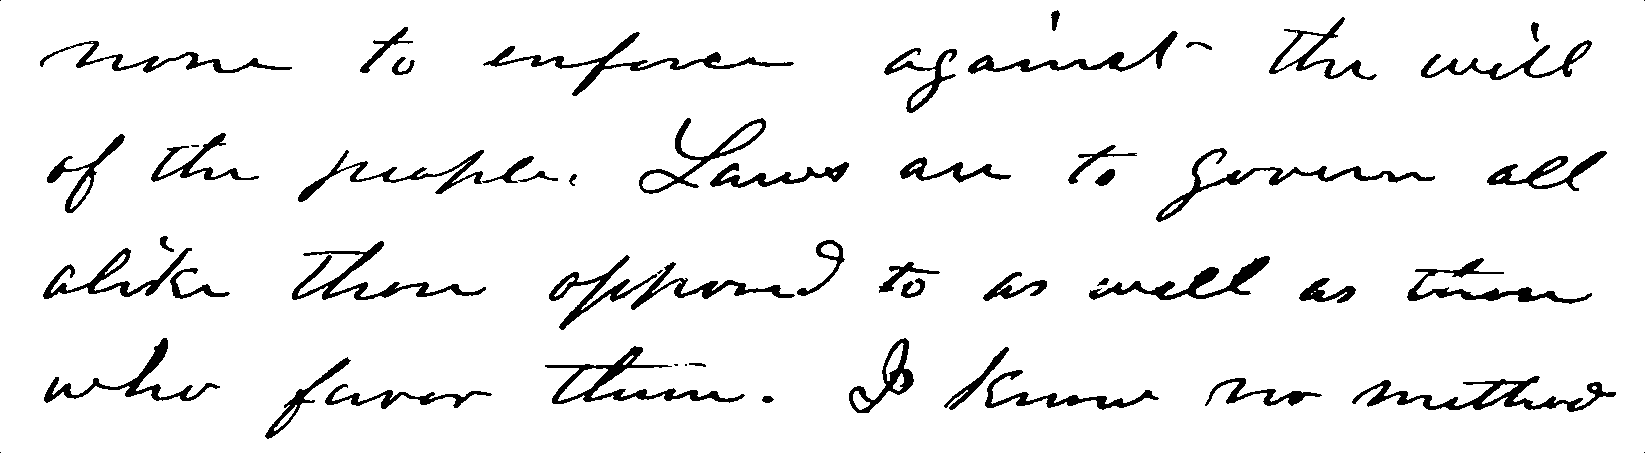 none to enforce against the will
of the people. Laws are to govern all
alike those opposed to as well as those
who favor them. I know no method